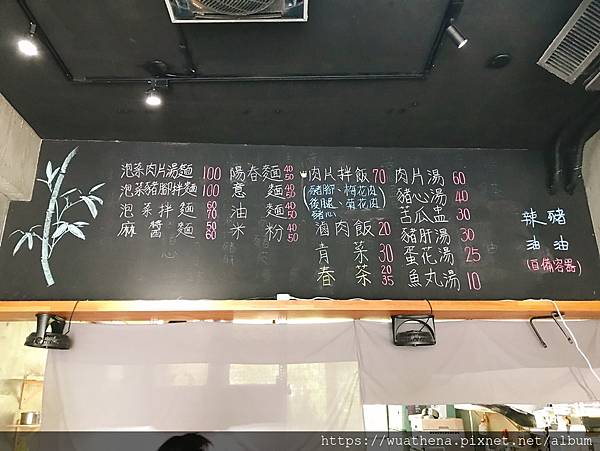 泡菜肉片湯麵 100
泡菜豬腳拌麵 100
泡菜拌麵 60 70
麻醬麵 50 60
陽春麵 40 50
意麵 40 50
油麵 40 50
米粉 40 50
肉片拌飯 70
(豬腳、梅花肉
後腿、菊花肉)
豬心
滷肉飯 20
青菜 30
春茶 20 35
肉片湯 60
豬心湯 40
苦瓜盅 30
豬肝湯 30
蛋花湯 25
魚丸湯 10
辣油
豬油
(自備容器)
https://wuathena.pixnet.net/album